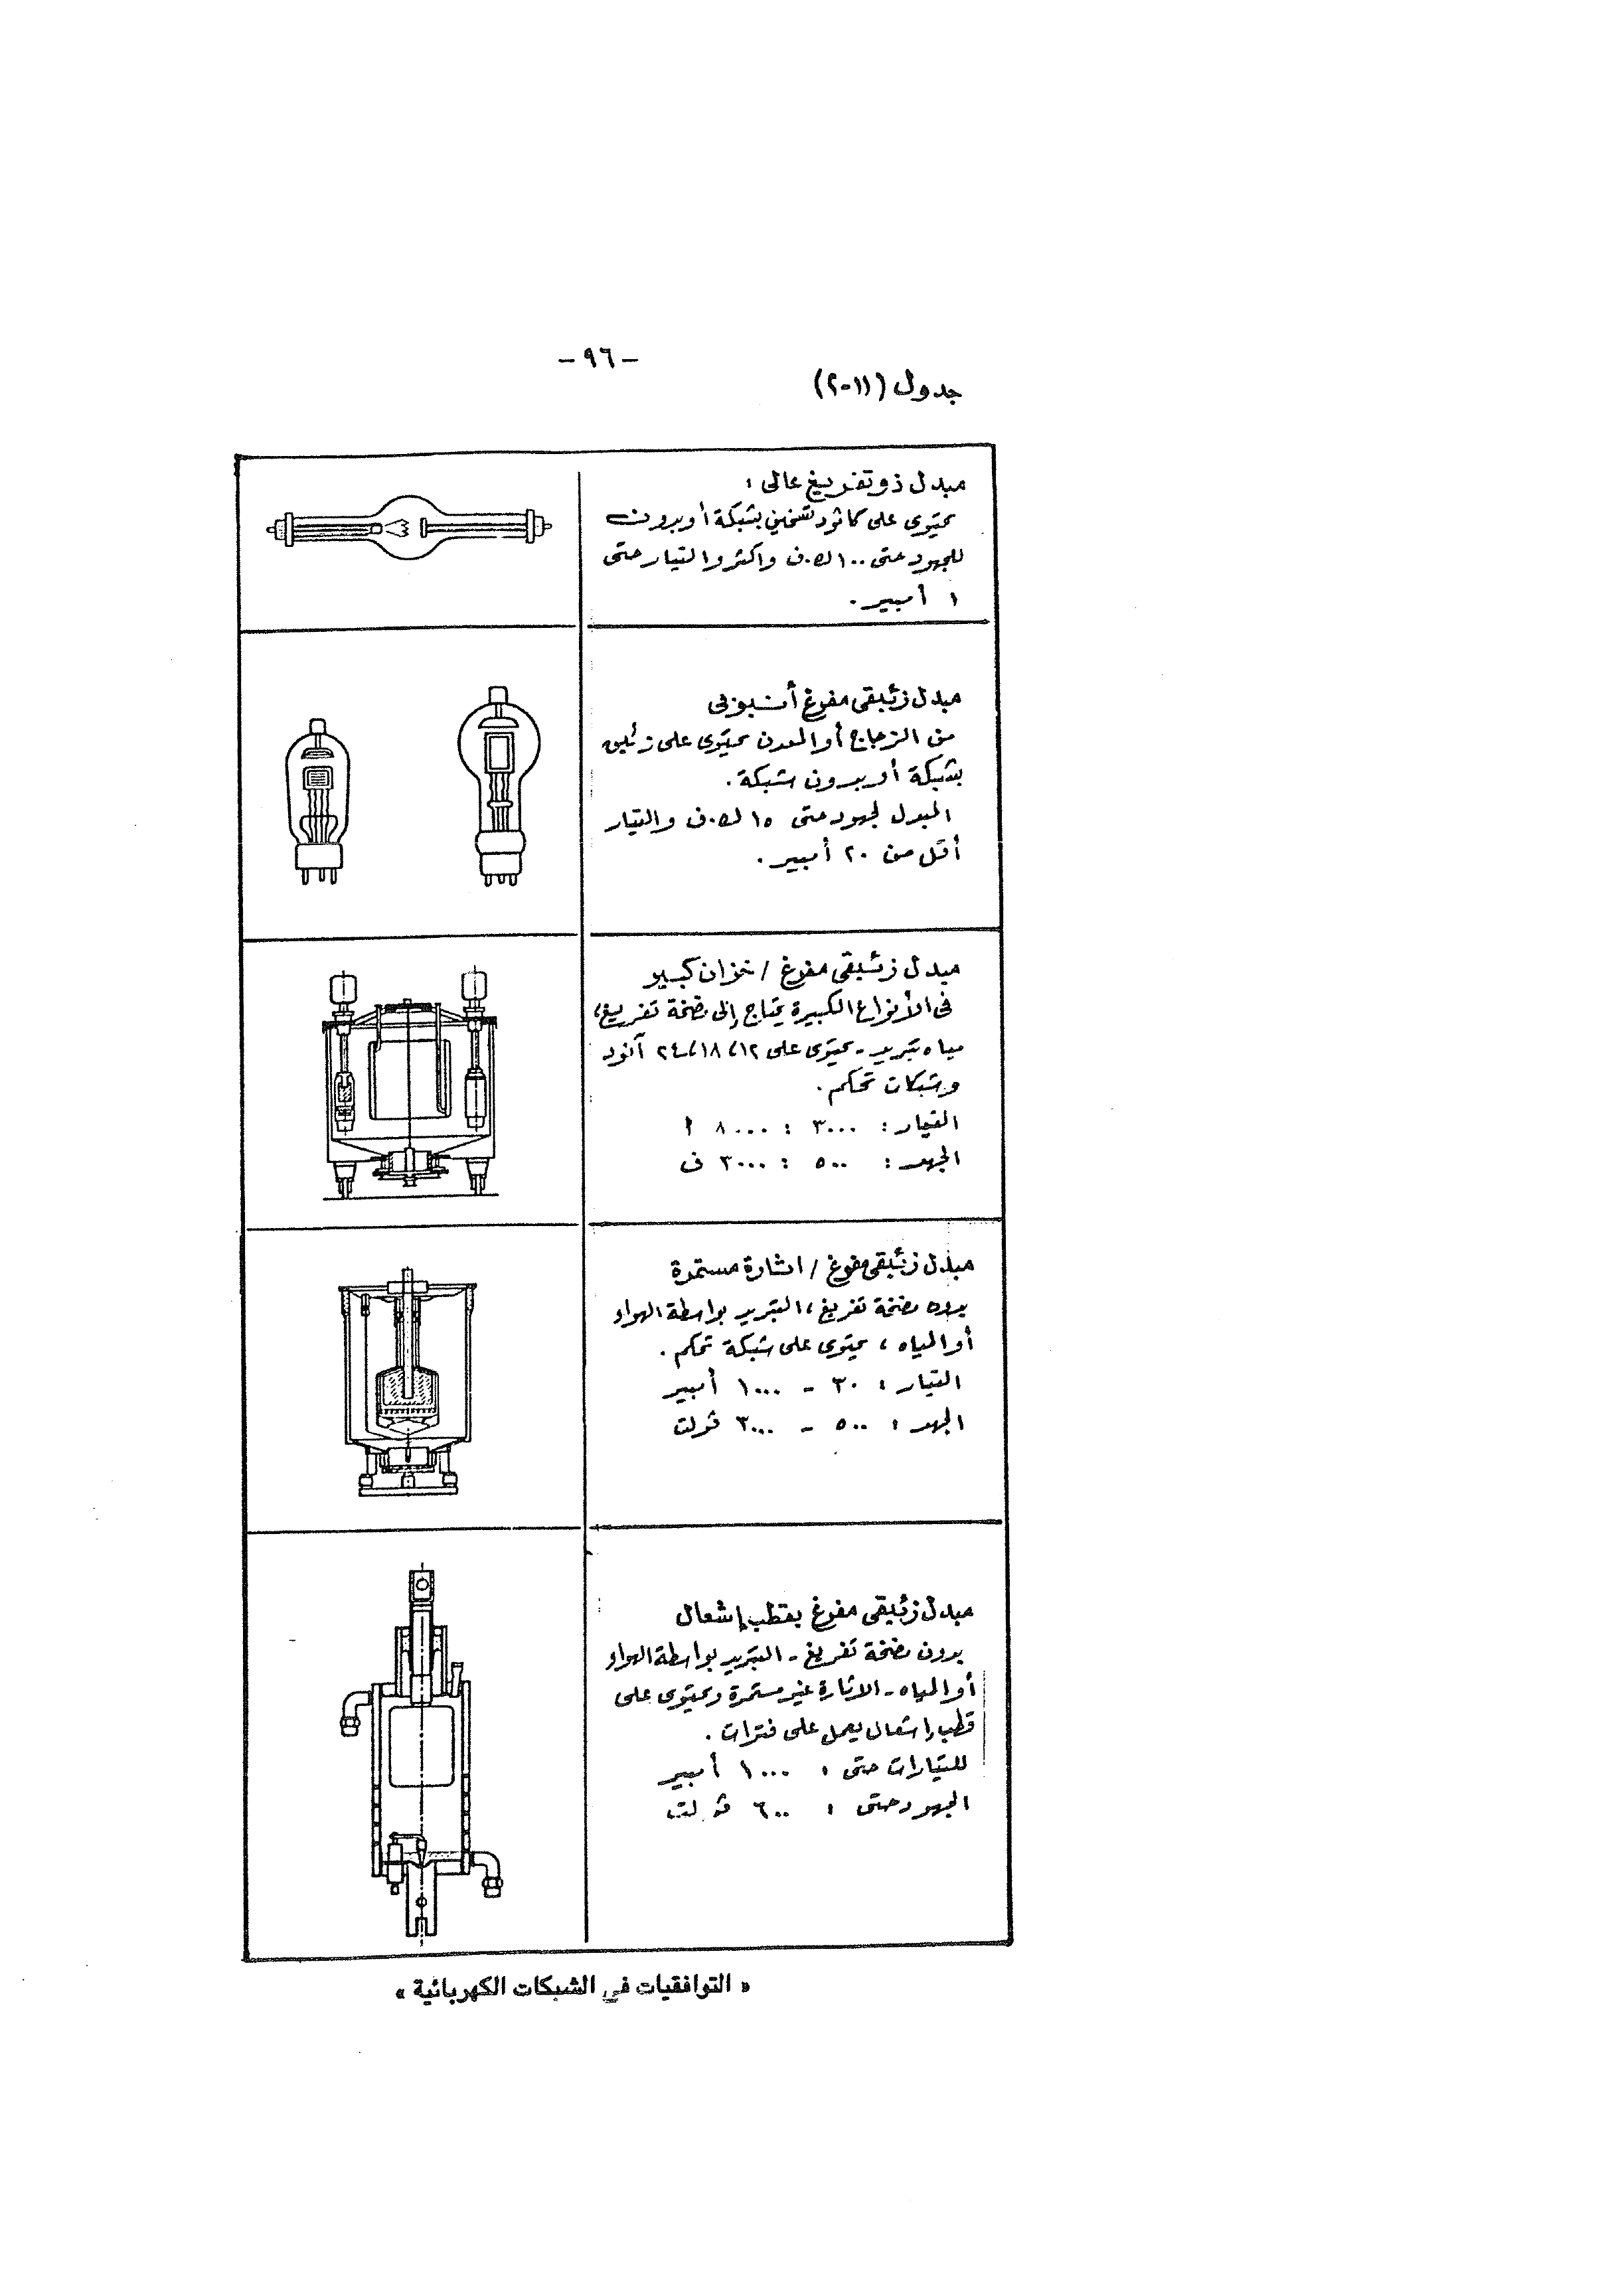 - ٩٦ -
جدول (١١-٢)
مبدل ذو تفريغ عالى :
يحتوى على كاثود تسخين بشبكة أو بدون
للجهود حتى ١٠٠ ك.ف واكثر والتيار حتى
١ أمبير .
مبدل زئبقى مفرغ أنبوبى
من الزجاج أو المعدن يحتوى على زئبق
بشبكة أو بدون شبكة .
المبدل لجهود حتى ١٥ ك.ف والتيار
أقل من ٢٠ أمبير .
مبدل زئبقى مفرغ / خزان كبير
فى الأنواع الكبيرة يحتاج إلى مضخة تفريغ ،
مياه تبريد - يحتوى على ١٢ ، ١٨ ، ٢٤ آنود
وشبكات تحكم .
التيار : ٣٠٠٠ : ٨٠٠٠ أ
الجهد : ٥٠٠ : ٣٠٠٠ ف
مبدل زئبقى مفرغ / اشارة مستمرة
بدون مضخة تفريغ ، التبريد بواسطة الهواء
أو المياه ، يحتوى على شبكة تحكم .
التيار : ٣٠ - ١٠٠٠ أمبير
الجهد : ٥٠٠ - ٣٠٠٠ ڤولت
مبدل زئبقى مفرغ بقطب إشعال
بدون مضخة تفريغ - التبريد بواسطة الهواء
أو المياه - الاثارة غير مستمرة ويحتوى على
قطب إشعال يعمل على فترات .
للتيارات حتى : ١٠٠٠ أمبير
الجهود حتى : ٦٠٠ ڤولت
« التوافقيات في الشبكات الكهربائية »